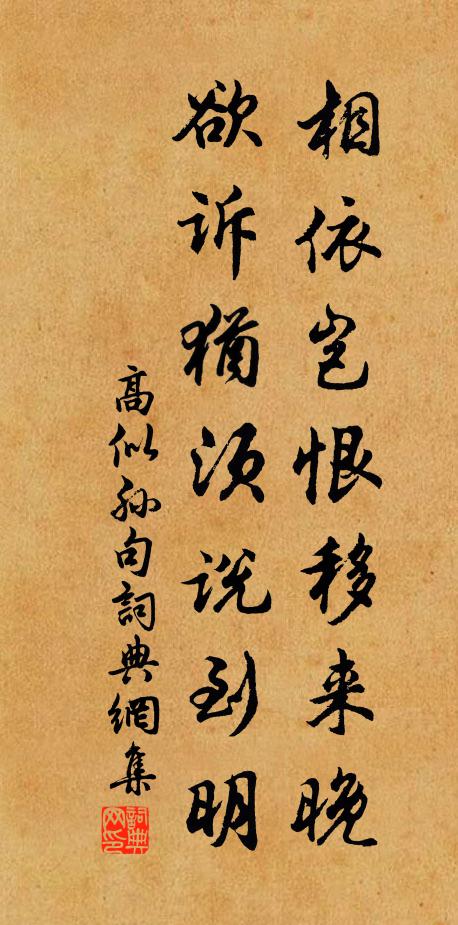 相依岂恨移来晚
欲诉犹须说到明
高似孙句詞典網集
詞典网印